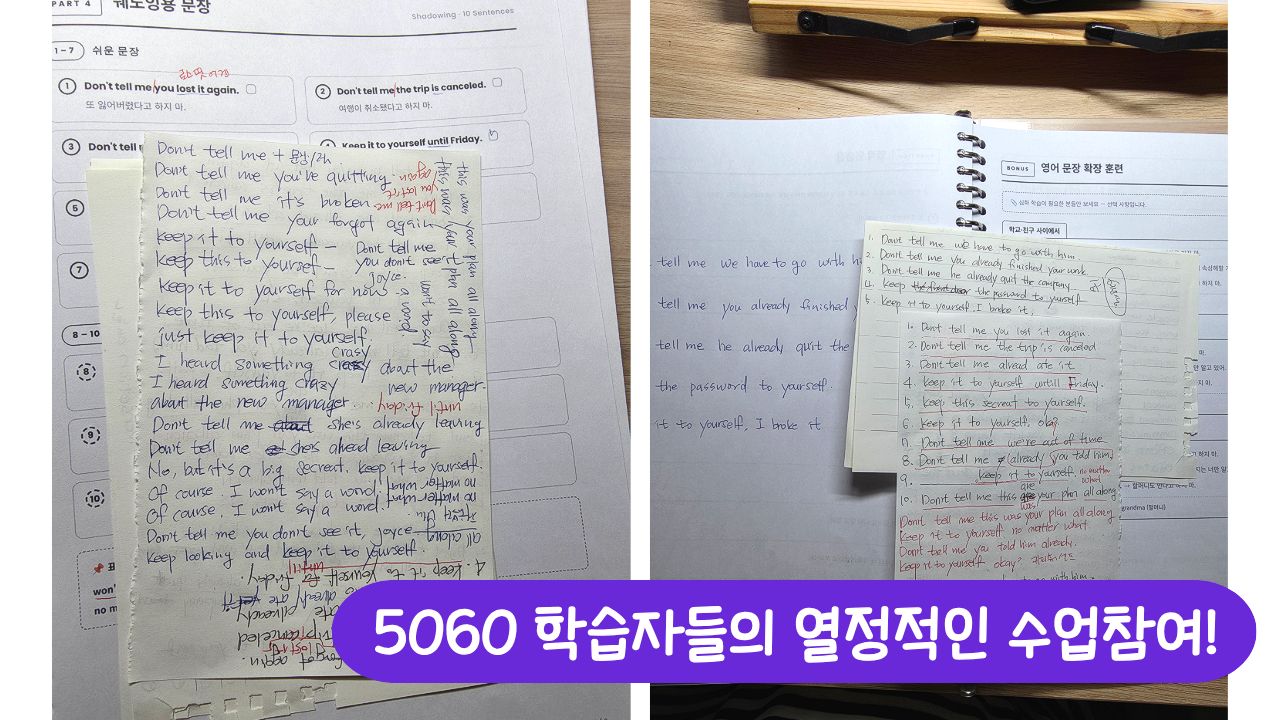 PART 4 궤도잉용 문장
Shadowing · 10 Sentences
1 – 7 쉬운 문장
1 Don't tell me you lost it again.
또 잃어버렸다고 하지 마.
2 Don't tell me the trip is canceled.
여행이 취소됐다고 하지 마.
3 Don't tell
Keep it to yourself until Friday.
5
7
8 – 10
8
9
10
won'
no m
Don't tell me +
Don't tell me you're quitting.
Don't tell me it's broken
Don't tell me your forgot again
keep it to yourself –
keep this to yourself –
Don't tell me
you don't see it
joyce.
keep it to yourself for now
keep this to yourself, please
just keep it to yourself
I heard something crazy about the
new manager
I heard something crazy
about the new manager.
until friday
Don't tell me she's already leaving
Don't tell me shes ahead leaving
No, but it's a big secreat, keep it to yourself.
Of course. I won't say a word
Of course. I won't say a word.
Don't tell me you don't see it, joyce
keep looking and keep it to yourself.
this was your plan all along
this was your plan all along
won't to say
a word
Don't tell me
you lost it
again
no matter what
no matter what
all along
4. keep it to yourself
until
friday.
already ate it
canceled
lost it
again.
BONUS 영어 문장 확장 훈련
심화 학습이 필요한 분들만 보세요 — 선택 사항입니다.
학교·친구 사이에서
tell me we have to go with h
tell me you already finished y
tell me he already quit the
the password to yourself.
it to yourself, I broke it
1. Don't tell me we have to go with him.
2. Don't tell me you already finished your work
3. Don't tell me he already quit the company
4. keep the password to yourself
5. keep it to yourself. I broke it.
1. Don't tell me you lost it again.
2. Don't tell me the trip is canceled
3. Don't tell me alread ate it
4. keep it to yourself untill Friday.
5. keep this secreat to yourself.
6. keep it to yourself, okay?
7. Don't tell me we're out of time
8. Don't tell me already you told him
9. keep it to yourself. no matter what
10. Don't tell me this are your plan all along
was
Don't tell me this was your plan all along
keep it to yourself no matter what.
Don't tell me you told him already.
keep it to yourself okay?
go with him.
grandma (할머니)
5060 학습자들의 열정적인 수업참여!